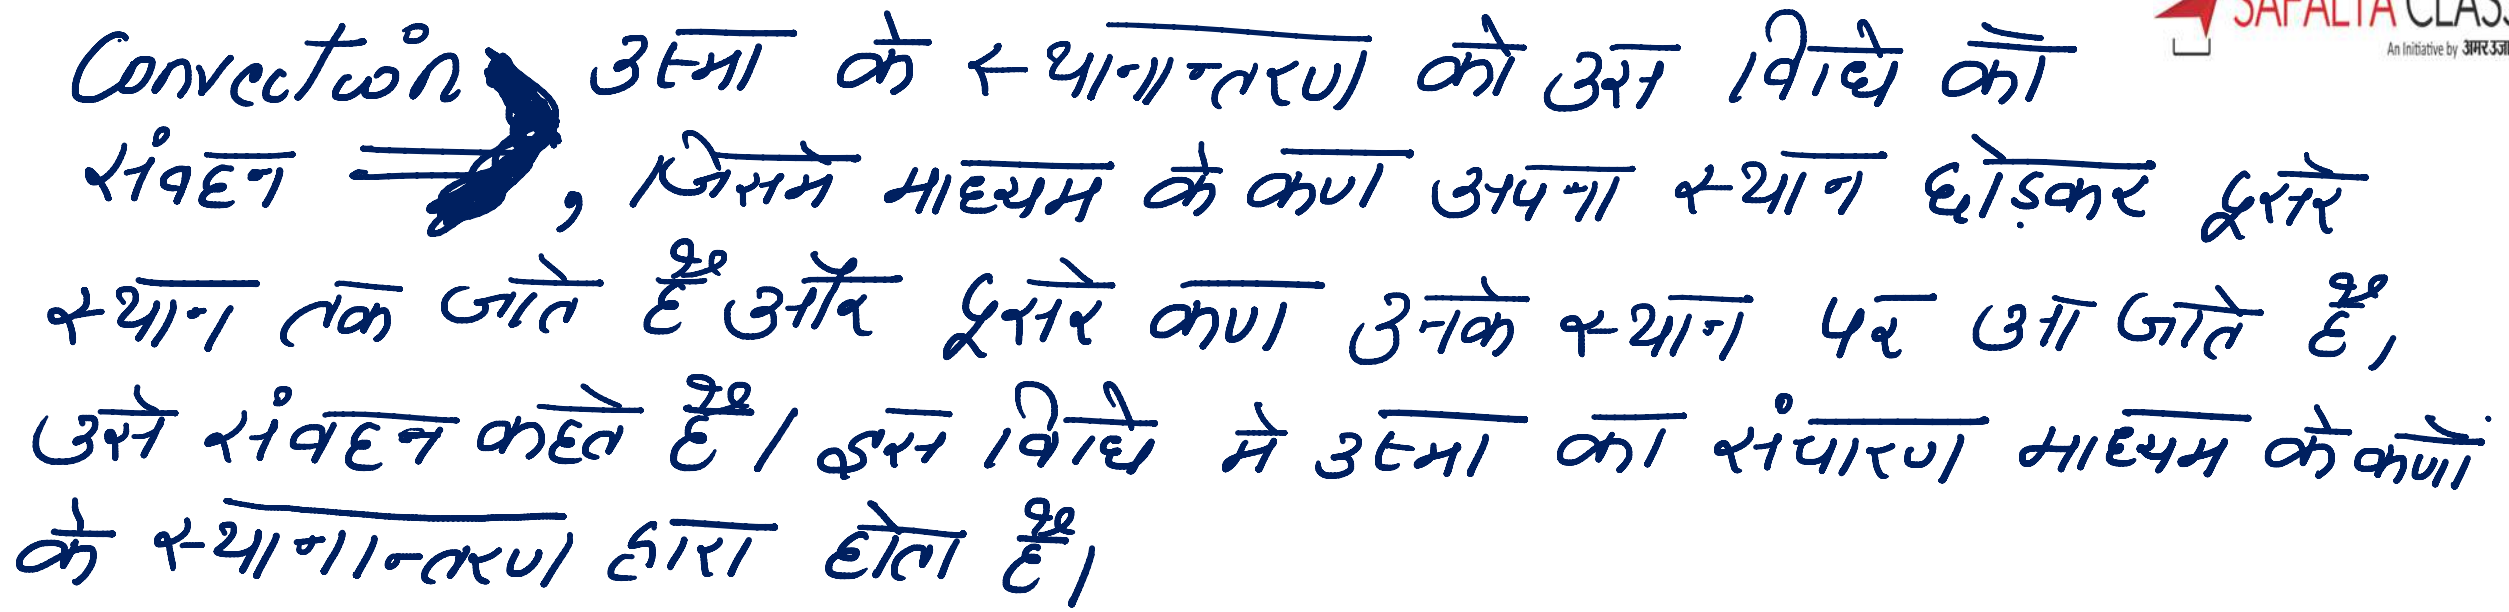 SAFALTA CLASS
An Initiative by अमर उजा
Convection उष्मा के स्थानान्तरण की उस विधि को
संवहन ⇒ , जिसमे माध्यम के कण अपना स्थान छोड़कर दूसरे
स्थान तक जाते है और दूसरे कण उनके स्थान पर आ जाते है,
उसे संवहन कहते है। इस विधि मे उष्मा का संचारण माध्यम के कणों
के स्थानान्तरण द्वारा होता है।